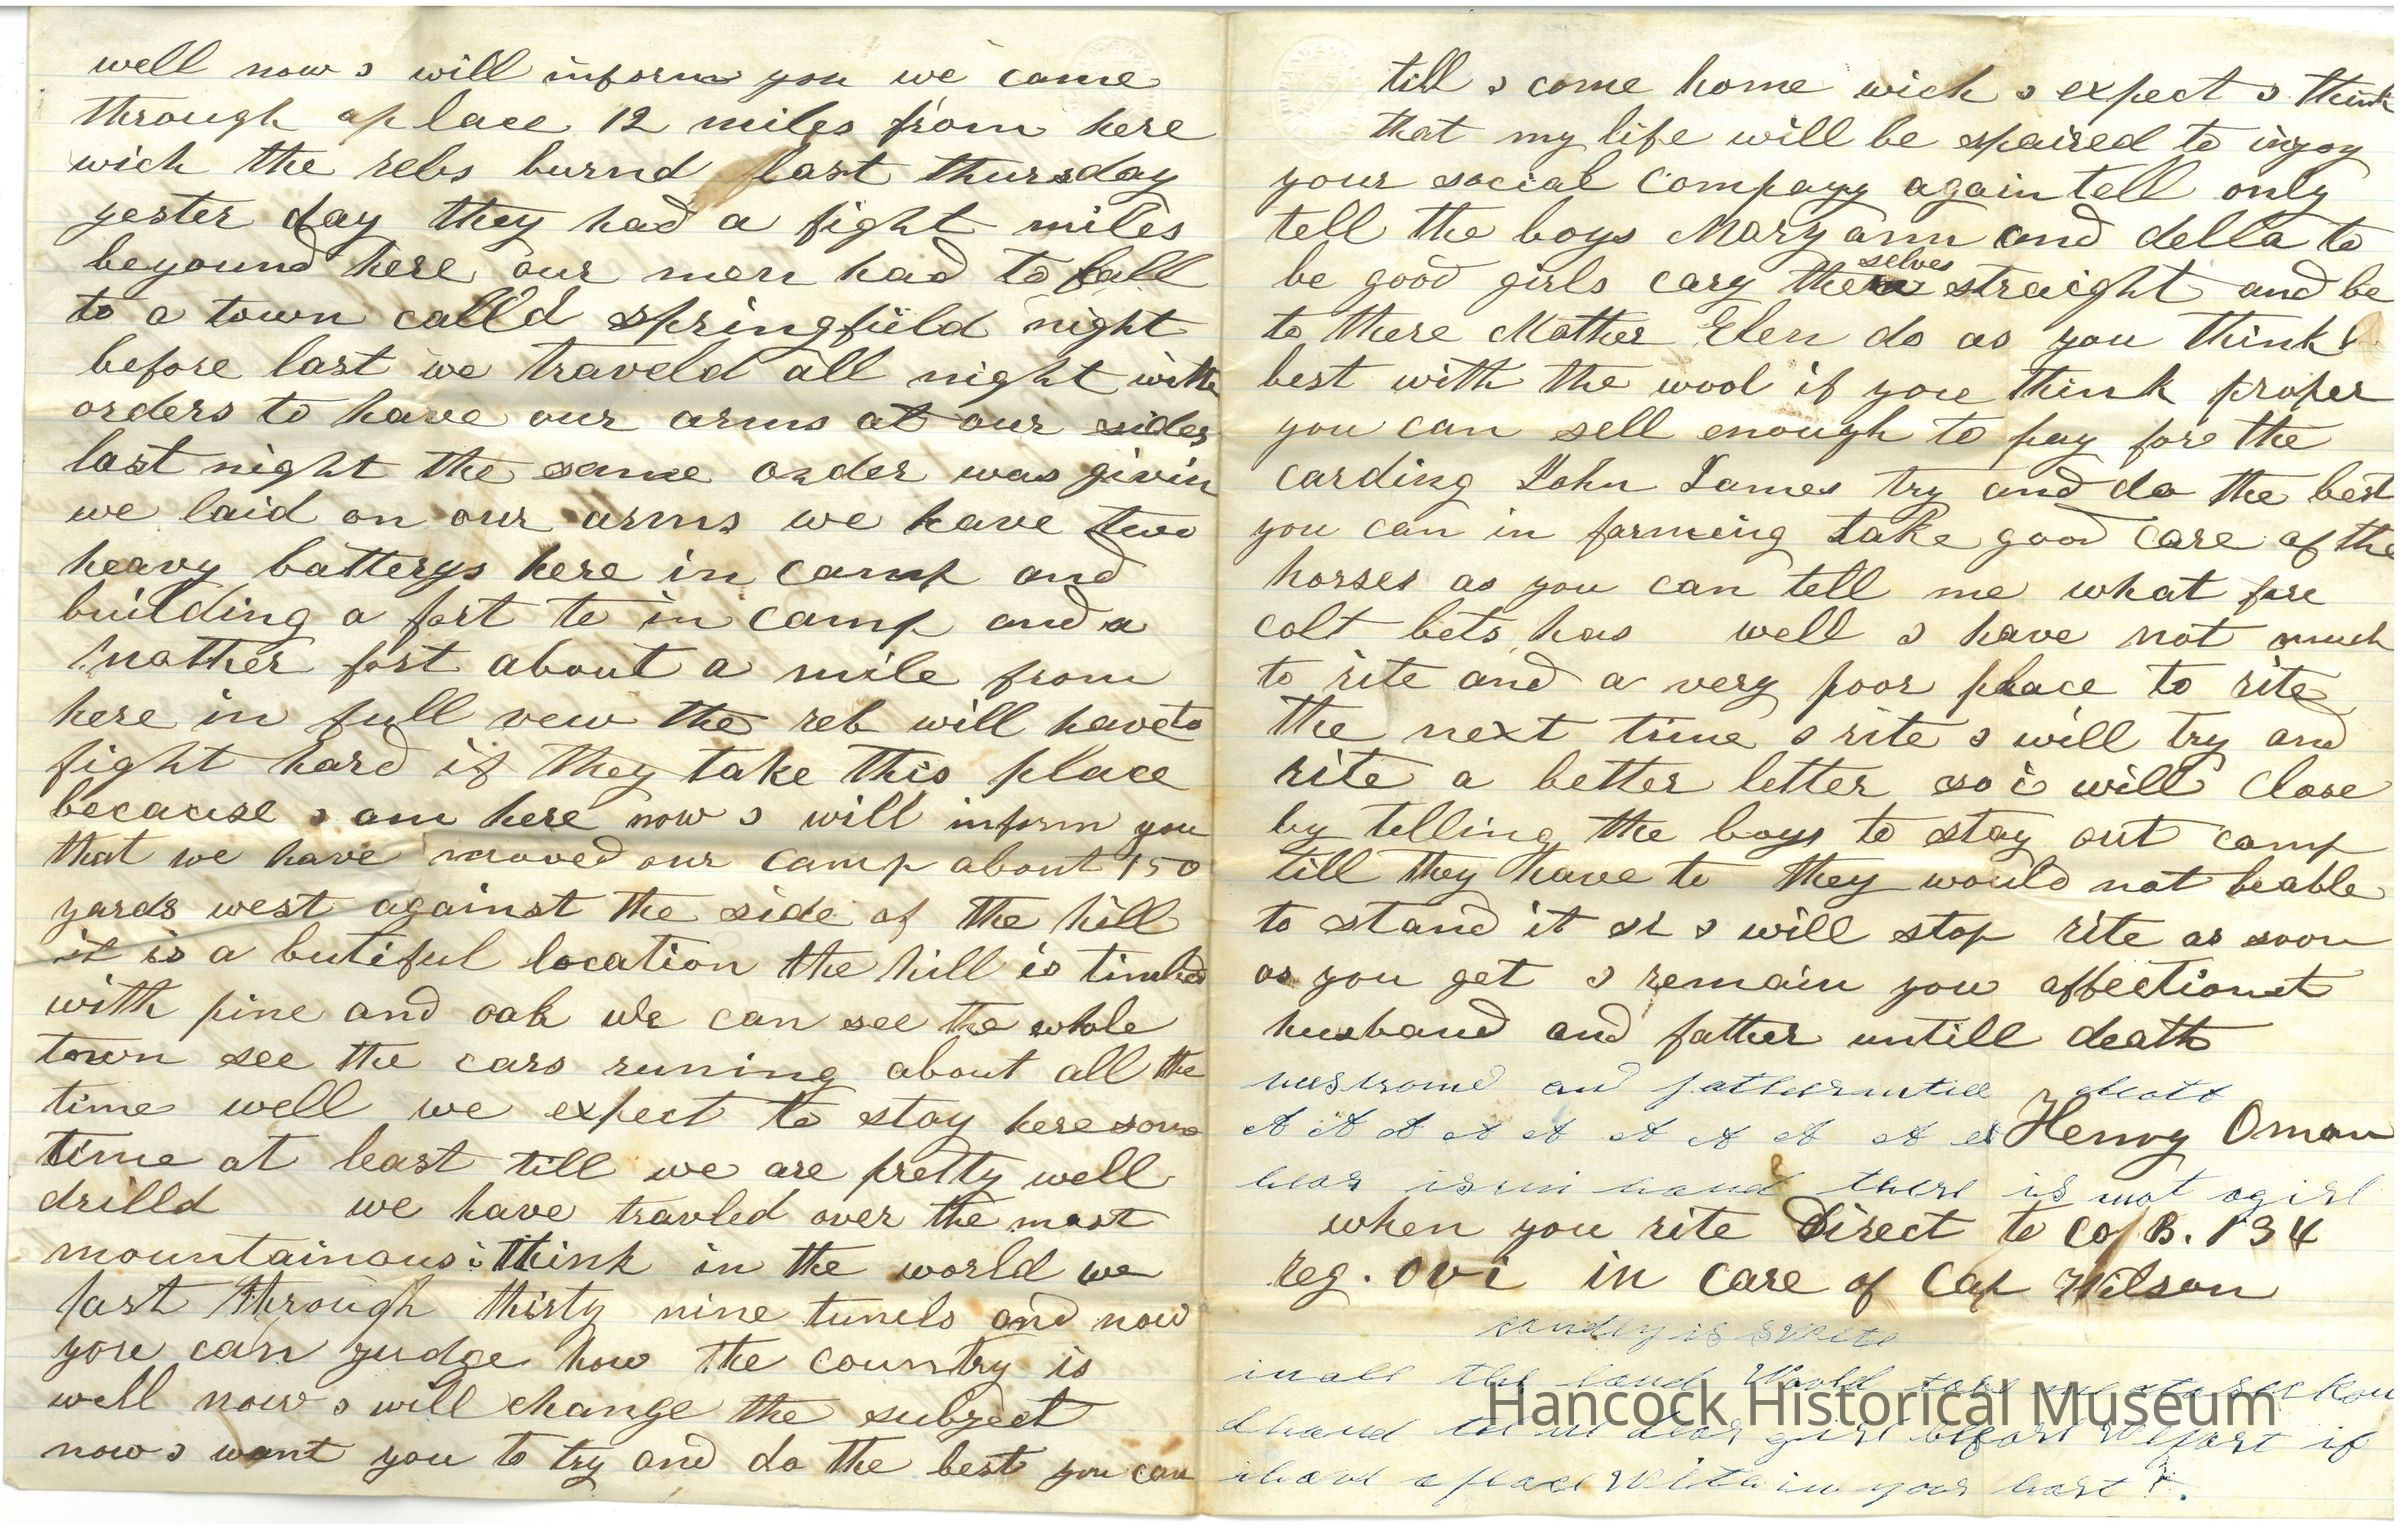 well now i will inform you we came
through aplace 12 miles from here
wich the rebs burnd last thursday
yester day they had a fight miles
beyound here our men had to fall
to a town calld springfield night
before last we traveld all night with
orders to have our arms at our sides
last night the same order was givin
we laid on our arms we have two
heavy batterys here in camp and
building a fort to in camp and a
nother fort about a mile from
here in full vew the reb will have to
fight hard if they take this place
because i am here now i will inform you
that we have mooved our camp about 150
yards west against the side of the hill
it is a butiful location the hill is timbed
with pine and oak we can see the whole
town see the cars runing about all the
time well we expect to stay here some
time at least till we are pretty well
drilld we have travled over the most
mountainous i think in the world we
past through thirty nine tunels and now
you can judge how the country is
well now i will change the subject
now i want you to try and do the best you can
till i come home wich i expect i think
that my life will be spaired to injoy
your social compayy again tell only
tell the boys Mary ann and della to
be good girls cary them selves straight and be
to there Mother Elen do as you think
best with the wool if you think proper
you can sell enough to pay fore the
carding John James try and do the best
you can in farming take good care of the
horses as you can tell me what fore
colt bets has well i have not much
to rite and a very poor place to rite
the next time i rite i will try and
rite a better letter so i will close
by telling the boys to stay out camp
till they have to they would not beable
to stand it so i will stop rite as soon
as you get i remain you affectionat
husband and father untill death
husbond and father untill death
Henry Oman
hear is mi hand there is not agirl
when you rite Direct to Co B. 134
reg. OVI in care of Cap Wilson
candy is sweete
in all the land Would
Hancock Historical Museum
dear girl before We part if
i have a place within your hart